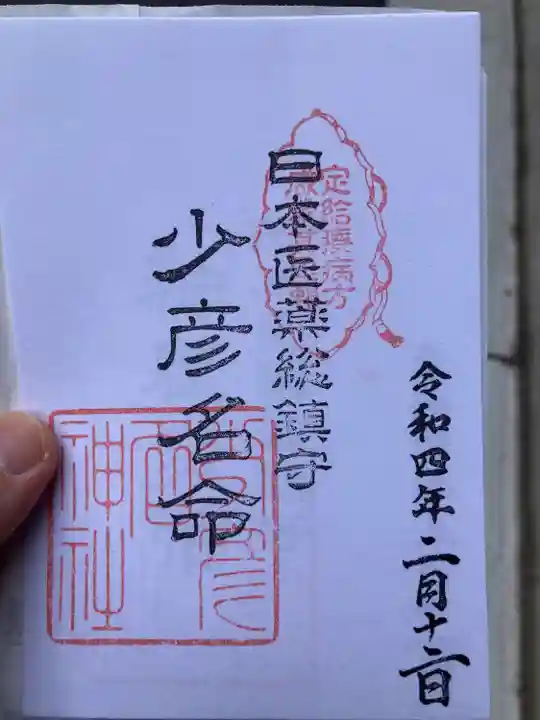 令和四年二月十二日
定給藥病方
日本医薬総鎮守
少彦名命
少彦
名
神社